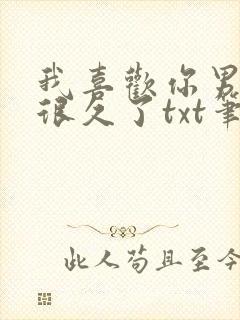 我喜歡你男
很久了txt筆
此人苟且至今